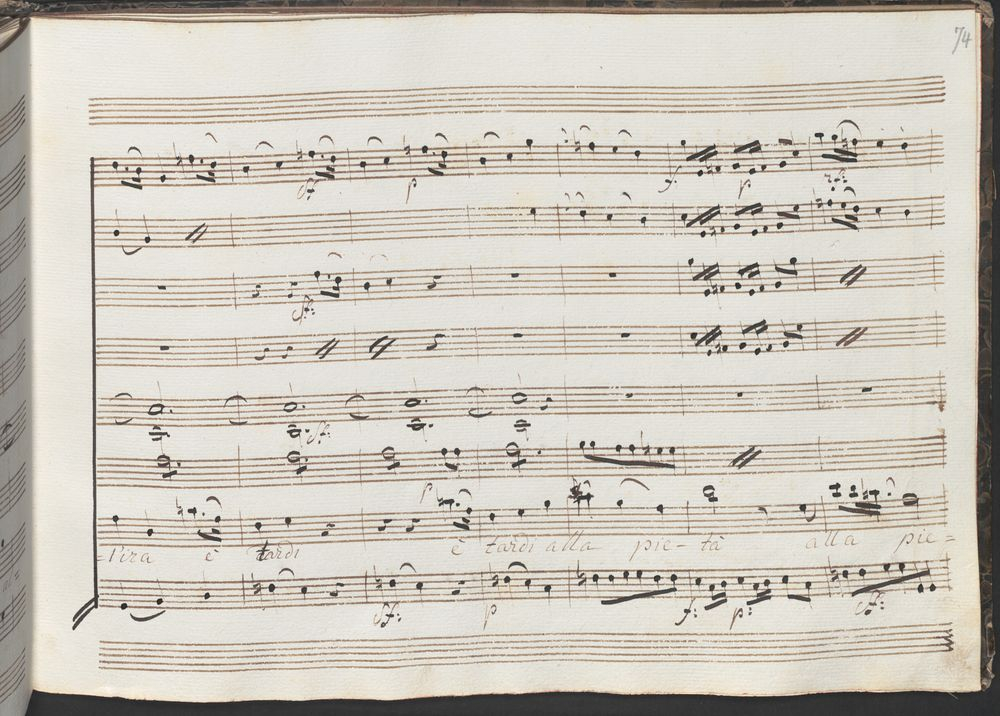 74
sf: p f. p. rf:
sf:
sf:
p
-l'ira è tardi è tardi alla pie-tà alla pie=
sf: p f: p: sf: